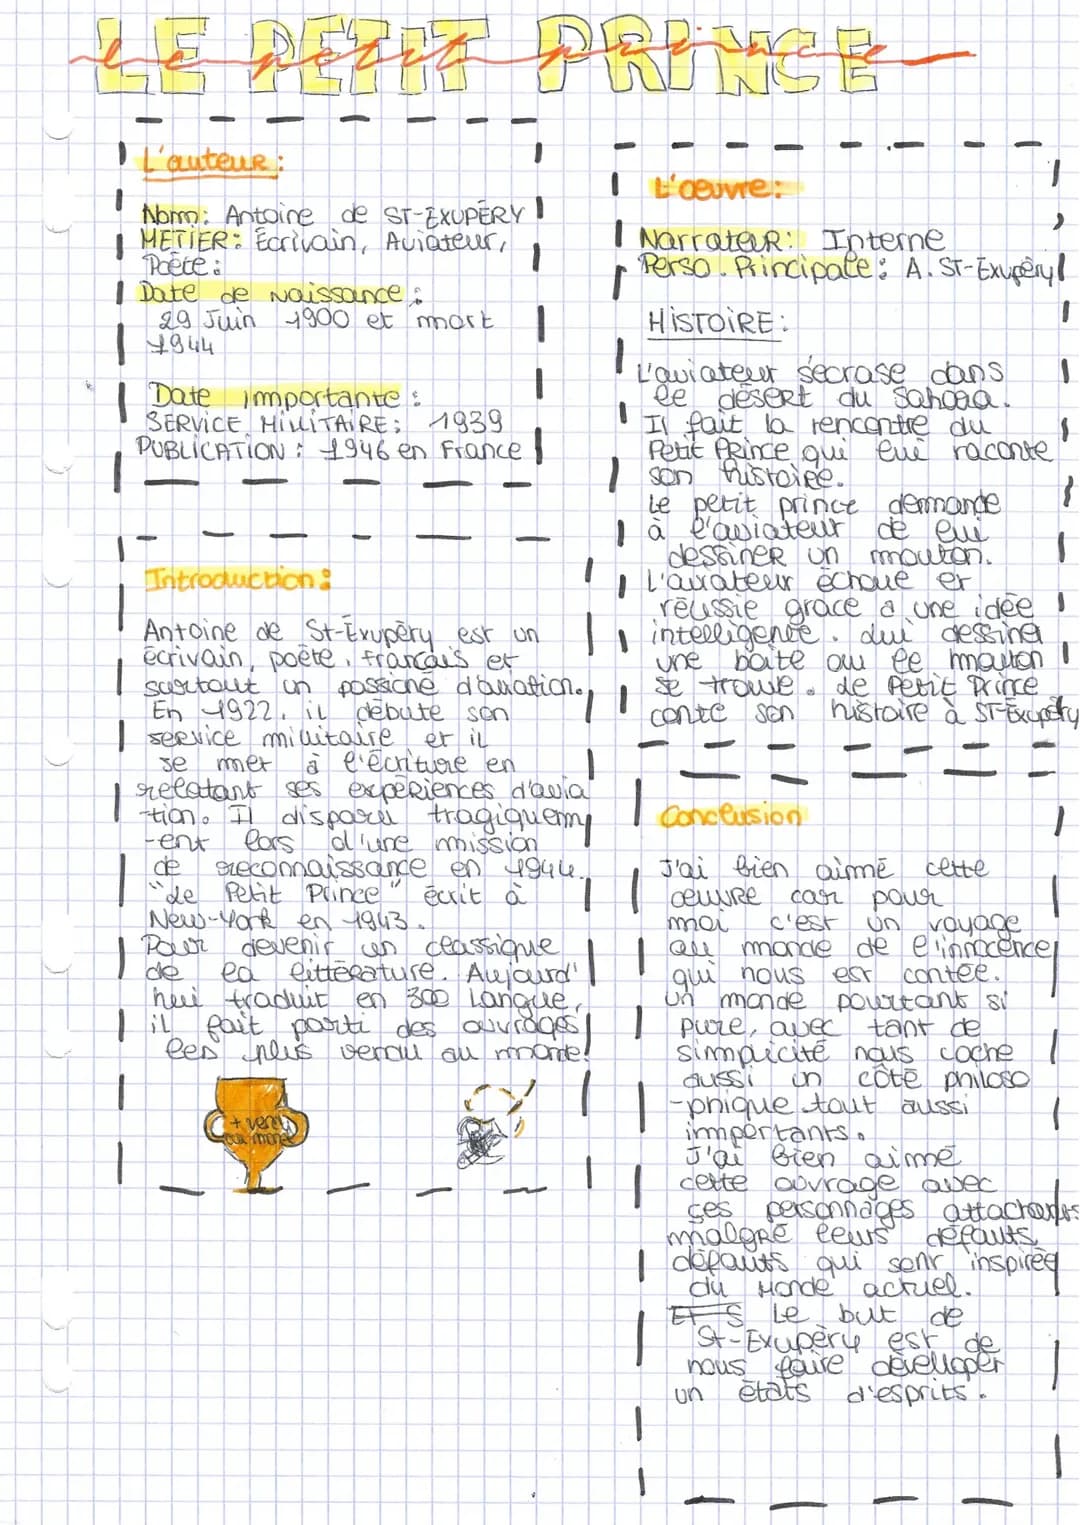 LE PETIT PRINCE
le petit prince
L'auteur :
Nom: Antoine de ST-EXUPÉRY
METIER: Écrivain, Aviateur,
Poète:
Date de Naissance :
29 Juin 1900 et mort
1944
Date importante :
SERVICE MILITAIRE: 1939
PUBLICATION : 1946 en France
Introduction :
Antoine de St-Exupéry est un
écrivain, poète, français et
surtout un passioné d'aviation.
En 1922, il débute son
service militaire et il
se met à l'écriture en
relatant ses expériences d'avia
-tion. Il disparu tragiquem
-ent lors d'une mission
de reconnaissance en 1944.
"Le Petit Prince" écrit à
New-York en 1943.
Pour devenir un classique
de la littérature. Aujourd'
hui traduit en 300 Langue,
il fait parti des ouvrages
les plus vendu au monde!
+ vend
au monde
L'œuvre :
Narrateur: Interne
Perso. Principale: A. ST-Exupéry
HISTOIRE :
L'aviateur s'écrase dans
le désert du Sahara.
Il fait la rencontre du
Petit Prince qui lui raconte
son histoire.
Le petit prince demande
à l'aviateur de lui
dessiner un mouton.
L'aviateur échoue et
réussie grace a une idée
intelligente. Lui dessiner
une boite ou le mouton
se trouve. Le Petit Prince
conte son histoire à ST-Exupéry
Conclusion
J'ai bien aimé cette
œuvre car pour
moi c'est un voyage
au monde de l'innocence
qui nous est contée.
un monde pourtant si
pure, avec tant de
simplicité nous cache
aussi un côté philoso
-phique tout aussi
importants.
J'ai bien aimé
cette ouvrage avec
ces personnages attachants
malgré leurs défauts,
défauts qui sont inspirés
du Monde actuel.
ET S Le but de
St-Exupéry est de
nous faire développer
un états d'esprits.